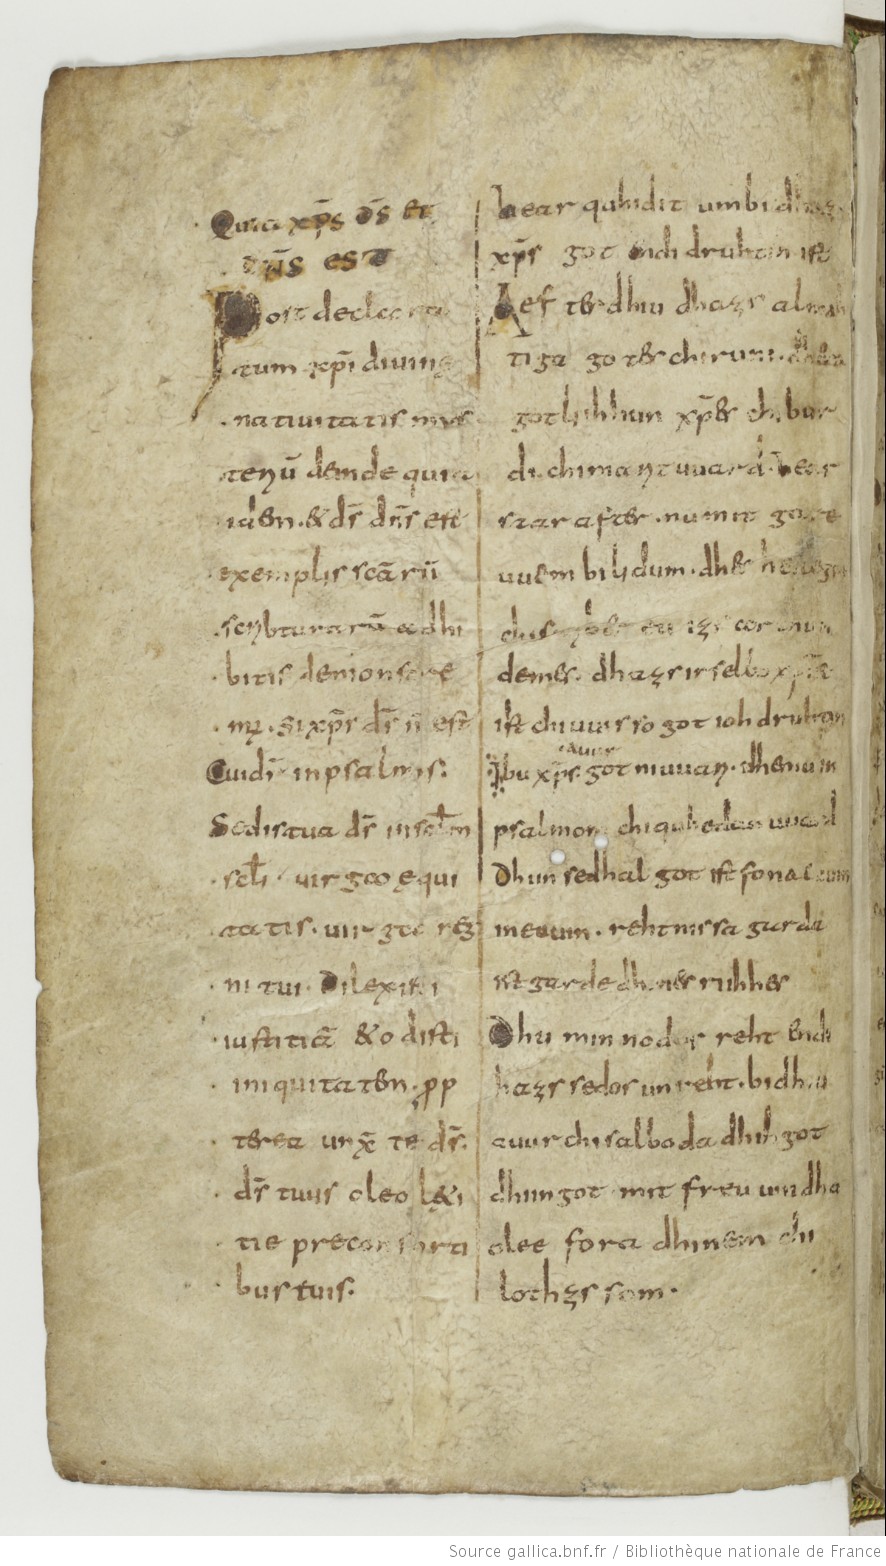 Quia xp̄s d̄s et
dn̄s est
Post declara
tum xp̄i diuinę
natiuitatis mys
teriū deinde quia
idem & d̄s dn̄s est
exemplis scārū
scribturarū adhi
bitis demonstre
mꝰ. Si xp̄s d̄s n̄ est
Cui dr̄ in psalmis.
Sedis tua d̄s in scl̄m
scl̄i uirga ęqui
tatis. uirga reg
ni tui. Dilexisti
iustitiā & odisti
iniquitatem. ꝓp
terea unx̄ te d̄s.
d̄s tuus oleo l&i
tie pre consorti
bus tuis.
hear quhidit umbi dhazs
xp̄s got endi druhtin ist
Aefter dhiu dhazs almah
tiga gotes chiruni. dhera
gotliihhun xp̄es chibur
di. chimarit uuard. hear
szar after. nu mit gare
uuem bilidum. dhes heilegin
chiscribes eu izs archun
demes. dhazs ir selbo xp̄s
ist chiuuisso got ioh druhtin
Ibu xp̄s auur got ni uuari. dhemu in
psalmom chiquhedan uuard
Dhiin sedhal got ist fona euuin
in euuin. rehtnissa garda
ist garde dhines riihhes
Dhu minnodos reht endi
hazssedos unreht. bidhiu
auur chisalboda dhih got
dhiin got mit freuuuidha
olee fora dhinem chi
lothzssom.
Source gallica.bnf.fr / Bibliothèque nationale de France